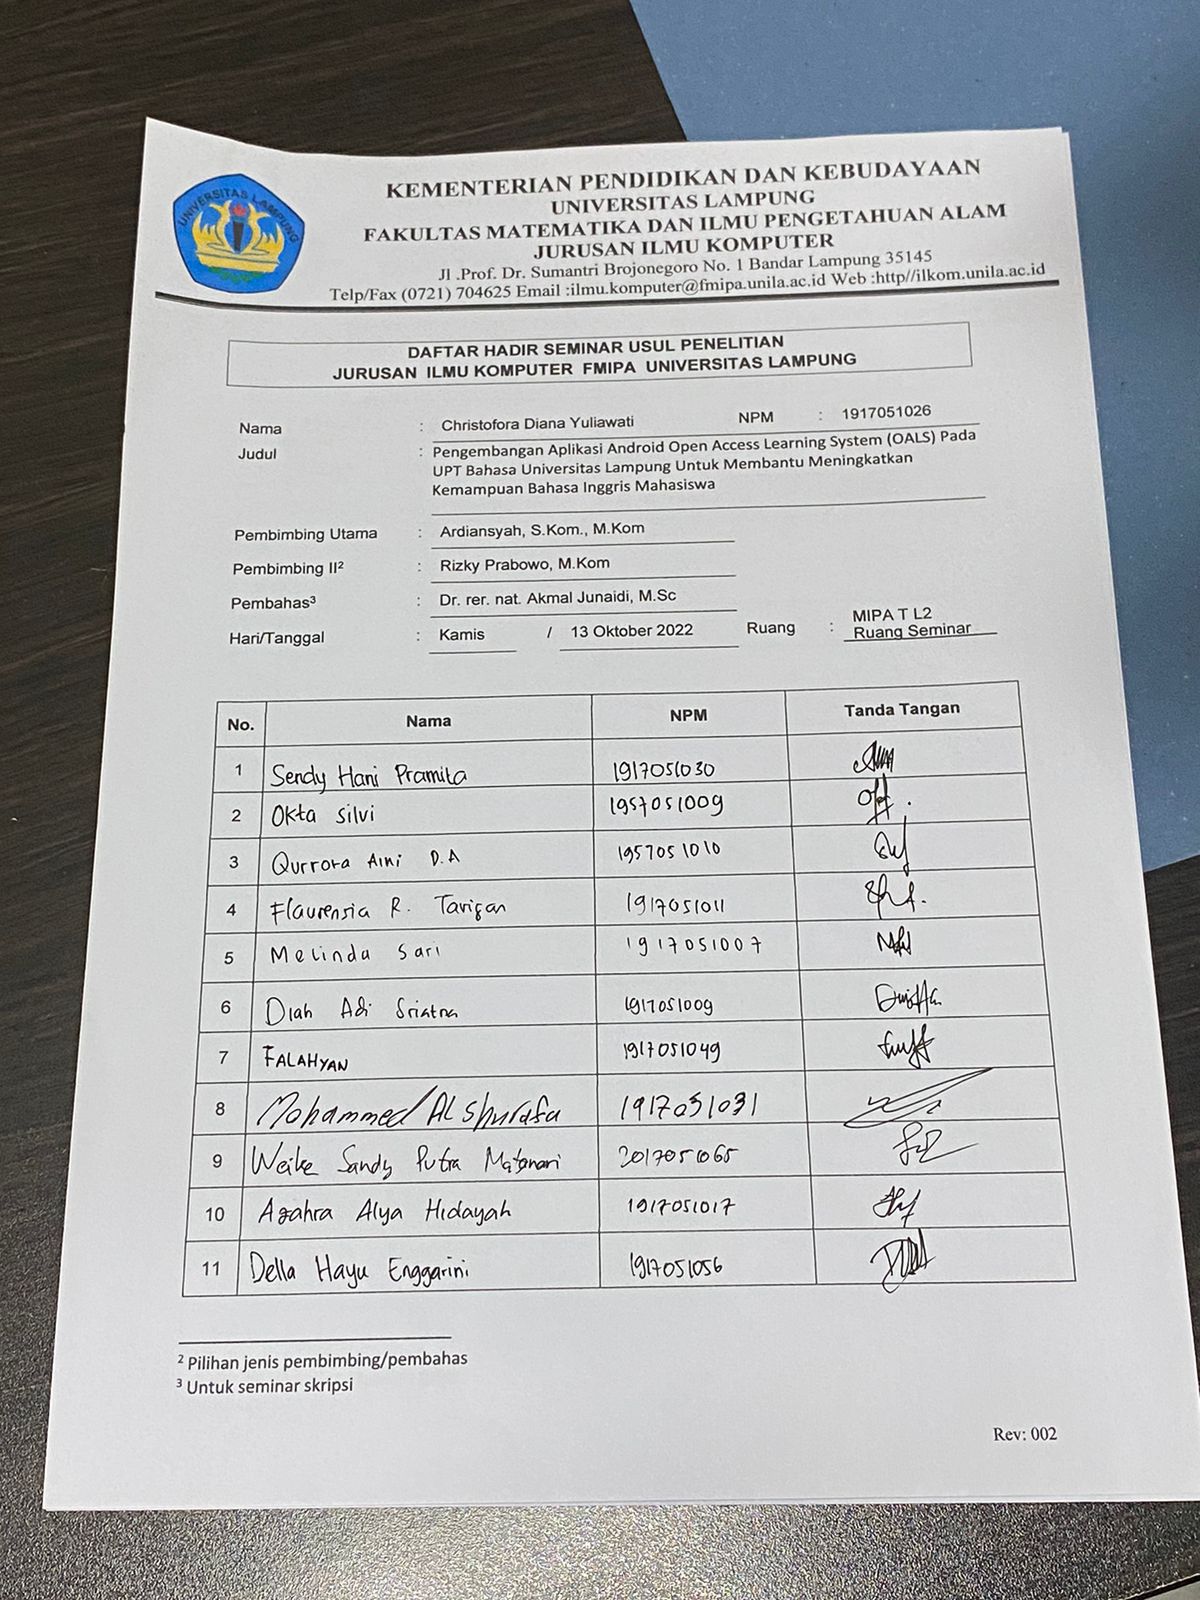 UNIVERSITAS LAMPUNG
KEMENTERIAN PENDIDIKAN DAN KEBUDAYAAN
UNIVERSITAS LAMPUNG
FAKULTAS MATEMATIKA DAN ILMU PENGETAHUAN ALAM
JURUSAN ILMU KOMPUTER
Jl .Prof. Dr. Sumantri Brojonegoro No. 1 Bandar Lampung 35145
Telp/Fax (0721) 704625 Email :ilmu.komputer@fmipa.unila.ac.id Web :http//ilkom.unila.ac.id
DAFTAR HADIR SEMINAR USUL PENELITIAN
JURUSAN ILMU KOMPUTER FMIPA UNIVERSITAS LAMPUNG
Nama : Christofora Diana Yuliawati NPM : 1917051026
Judul : Pengembangan Aplikasi Android Open Access Learning System (OALS) Pada
UPT Bahasa Universitas Lampung Untuk Membantu Meningkatkan
Kemampuan Bahasa Inggris Mahasiswa
Pembimbing Utama : Ardiansyah, S.Kom., M.Kom
Pembimbing II² : Rizky Prabowo, M.Kom
Pembahas³ : Dr. rer. nat. Akmal Junaidi, M.Sc
Hari/Tanggal : Kamis / 13 Oktober 2022 Ruang : MIPA T L2
Ruang Seminar
No. Nama NPM Tanda Tangan
1 Sendy Hani Pramita 1917051030
2 Okta Silvi 1957051009
3 Qurrora Aini D.A 1957051010
4 Flaurensia R. Tarigan 1917051011
5 Melinda Sari 1917051007
6 Diah Adi Sriatna 1917051009
7 FALAHYAN 1917051049
8 Mohammed Al Shurafa 1917051031
9 Weike Sandy Putra Matanari 2017051065
10 Azahra Alya Hidayah 1917051017
11 Della Hayu Enggarini 1917051056
² Pilihan jenis pembimbing/pembahas
³ Untuk seminar skripsi
Rev: 002